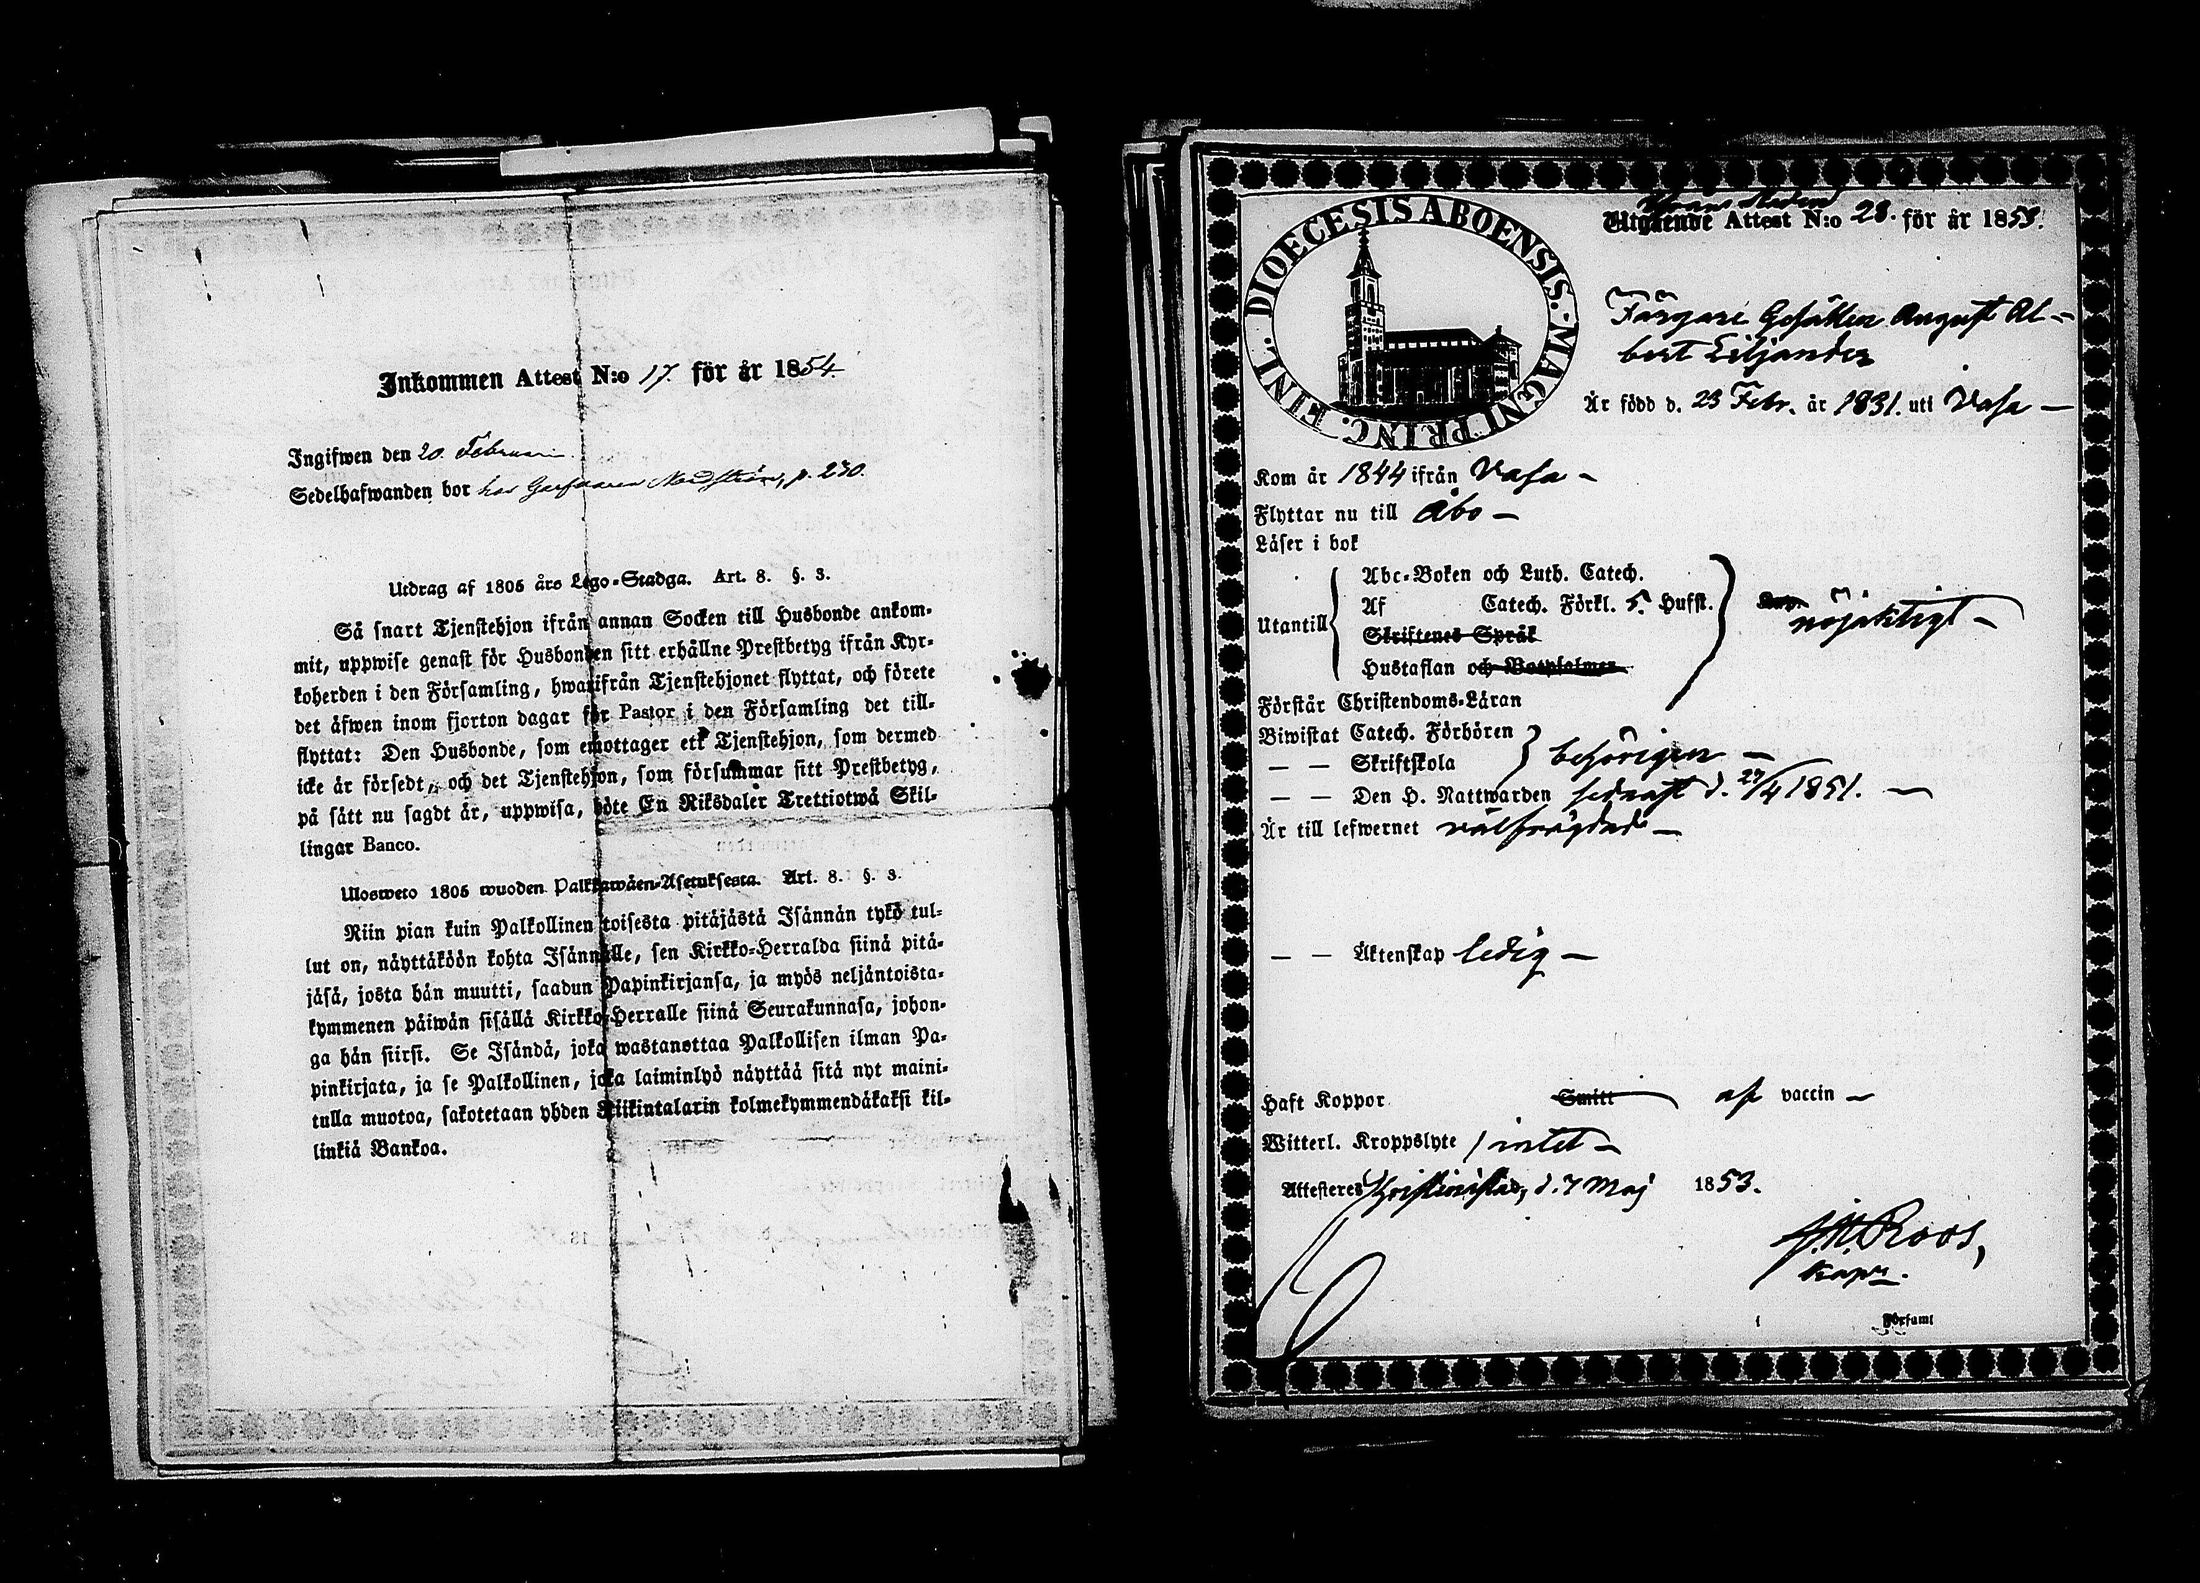 Inkommen Attest N:o 17. för år 1854.
Ingifwen den 20. Februari
Sedelhafwanden bor hos Garfvaren Nordström, p. 230.
Utdrag af 1805 års Lego-Stadga. Art. 8. §. 3.
Så snart Tjenstehjon ifrån annan Socken till Husbonde ankom-
mit, uppwise genast för Husbonden sitt erhållne Prestbetyg ifrån Kyr-
koherden i den Församling, hwarifrån Tjenstehjonet flyttat, och förete
det äfwen inom fjorton dagar för Pastor i den Församling det till-
flyttat: Den Husbonde, som emottager ett Tjenstehjon, som dermed
icke är försedt, och det Tjenstehjon, som försummar sitt Prestbetyg,
på sätt nu sagdt är, uppwisa, böte En Riksdaler Trettiotwå Skil-
lingar Banco.
Ulosweto 1805 wuoden Palkkawäen-Asetuksesta. Art. 8. §. 3.
Niin pian kuin Palkollinen toisesta pitäjästä Isännän tykö tul-
lut on, näyttäköön kohta Isännälle, sen Kirkko-Herralda siinä pitä-
jäsä, josta hän muutti, saadun Papinkirjansa, ja myös neljäntoista-
kymmenen päiwän sisällä Kirkko-Herralle siinä Seurakunnasa, johon-
ga hän siirsi. Se Isändä, joka wastanottaa Palkollisen ilman Pa-
pinkirjata, ja se Palkollinen, joka laiminlyö näyttää sitä nyt maini-
tulla muotoa, sakotetaan yhden Riikintalarin kolmekymmendäkaksi kil-
linkiä Bankoa.
DIOECESIS ABOENSIS. MAGNI PRINC. FINL.
Utgående Attest N:o 28. för år 1853.
Färgare Gesällen August Al-
bert Liljander
Är född d. 23 Febr. år 1831. uti Vasa —
Kom år 1844 ifrån Vasa —
Flyttar nu till Åbo —
Läser i bok
Utantill
Abc-Boken och Luth. Catech.
Af Catech. Förkl. 5. Hufst. nöjaktigt —
Skriftenes Språk
Hustaflan och Botpsalmer
Förstår Christendoms-Läran
Biwistat Catech. Förhören
— — Skriftskola behörigen —
— — Den H. Nattwarden sednast d. 27/4 1851. —
Är till lefwernet välfrägdad —
— — Äktenskap ledig —
Haft Koppor Smitt af vaccin —
Witterl. Kroppslyte intet —
Attesteres Christinestad, d. 7 Maj 1853.
Roos,
Kapn.
Församl